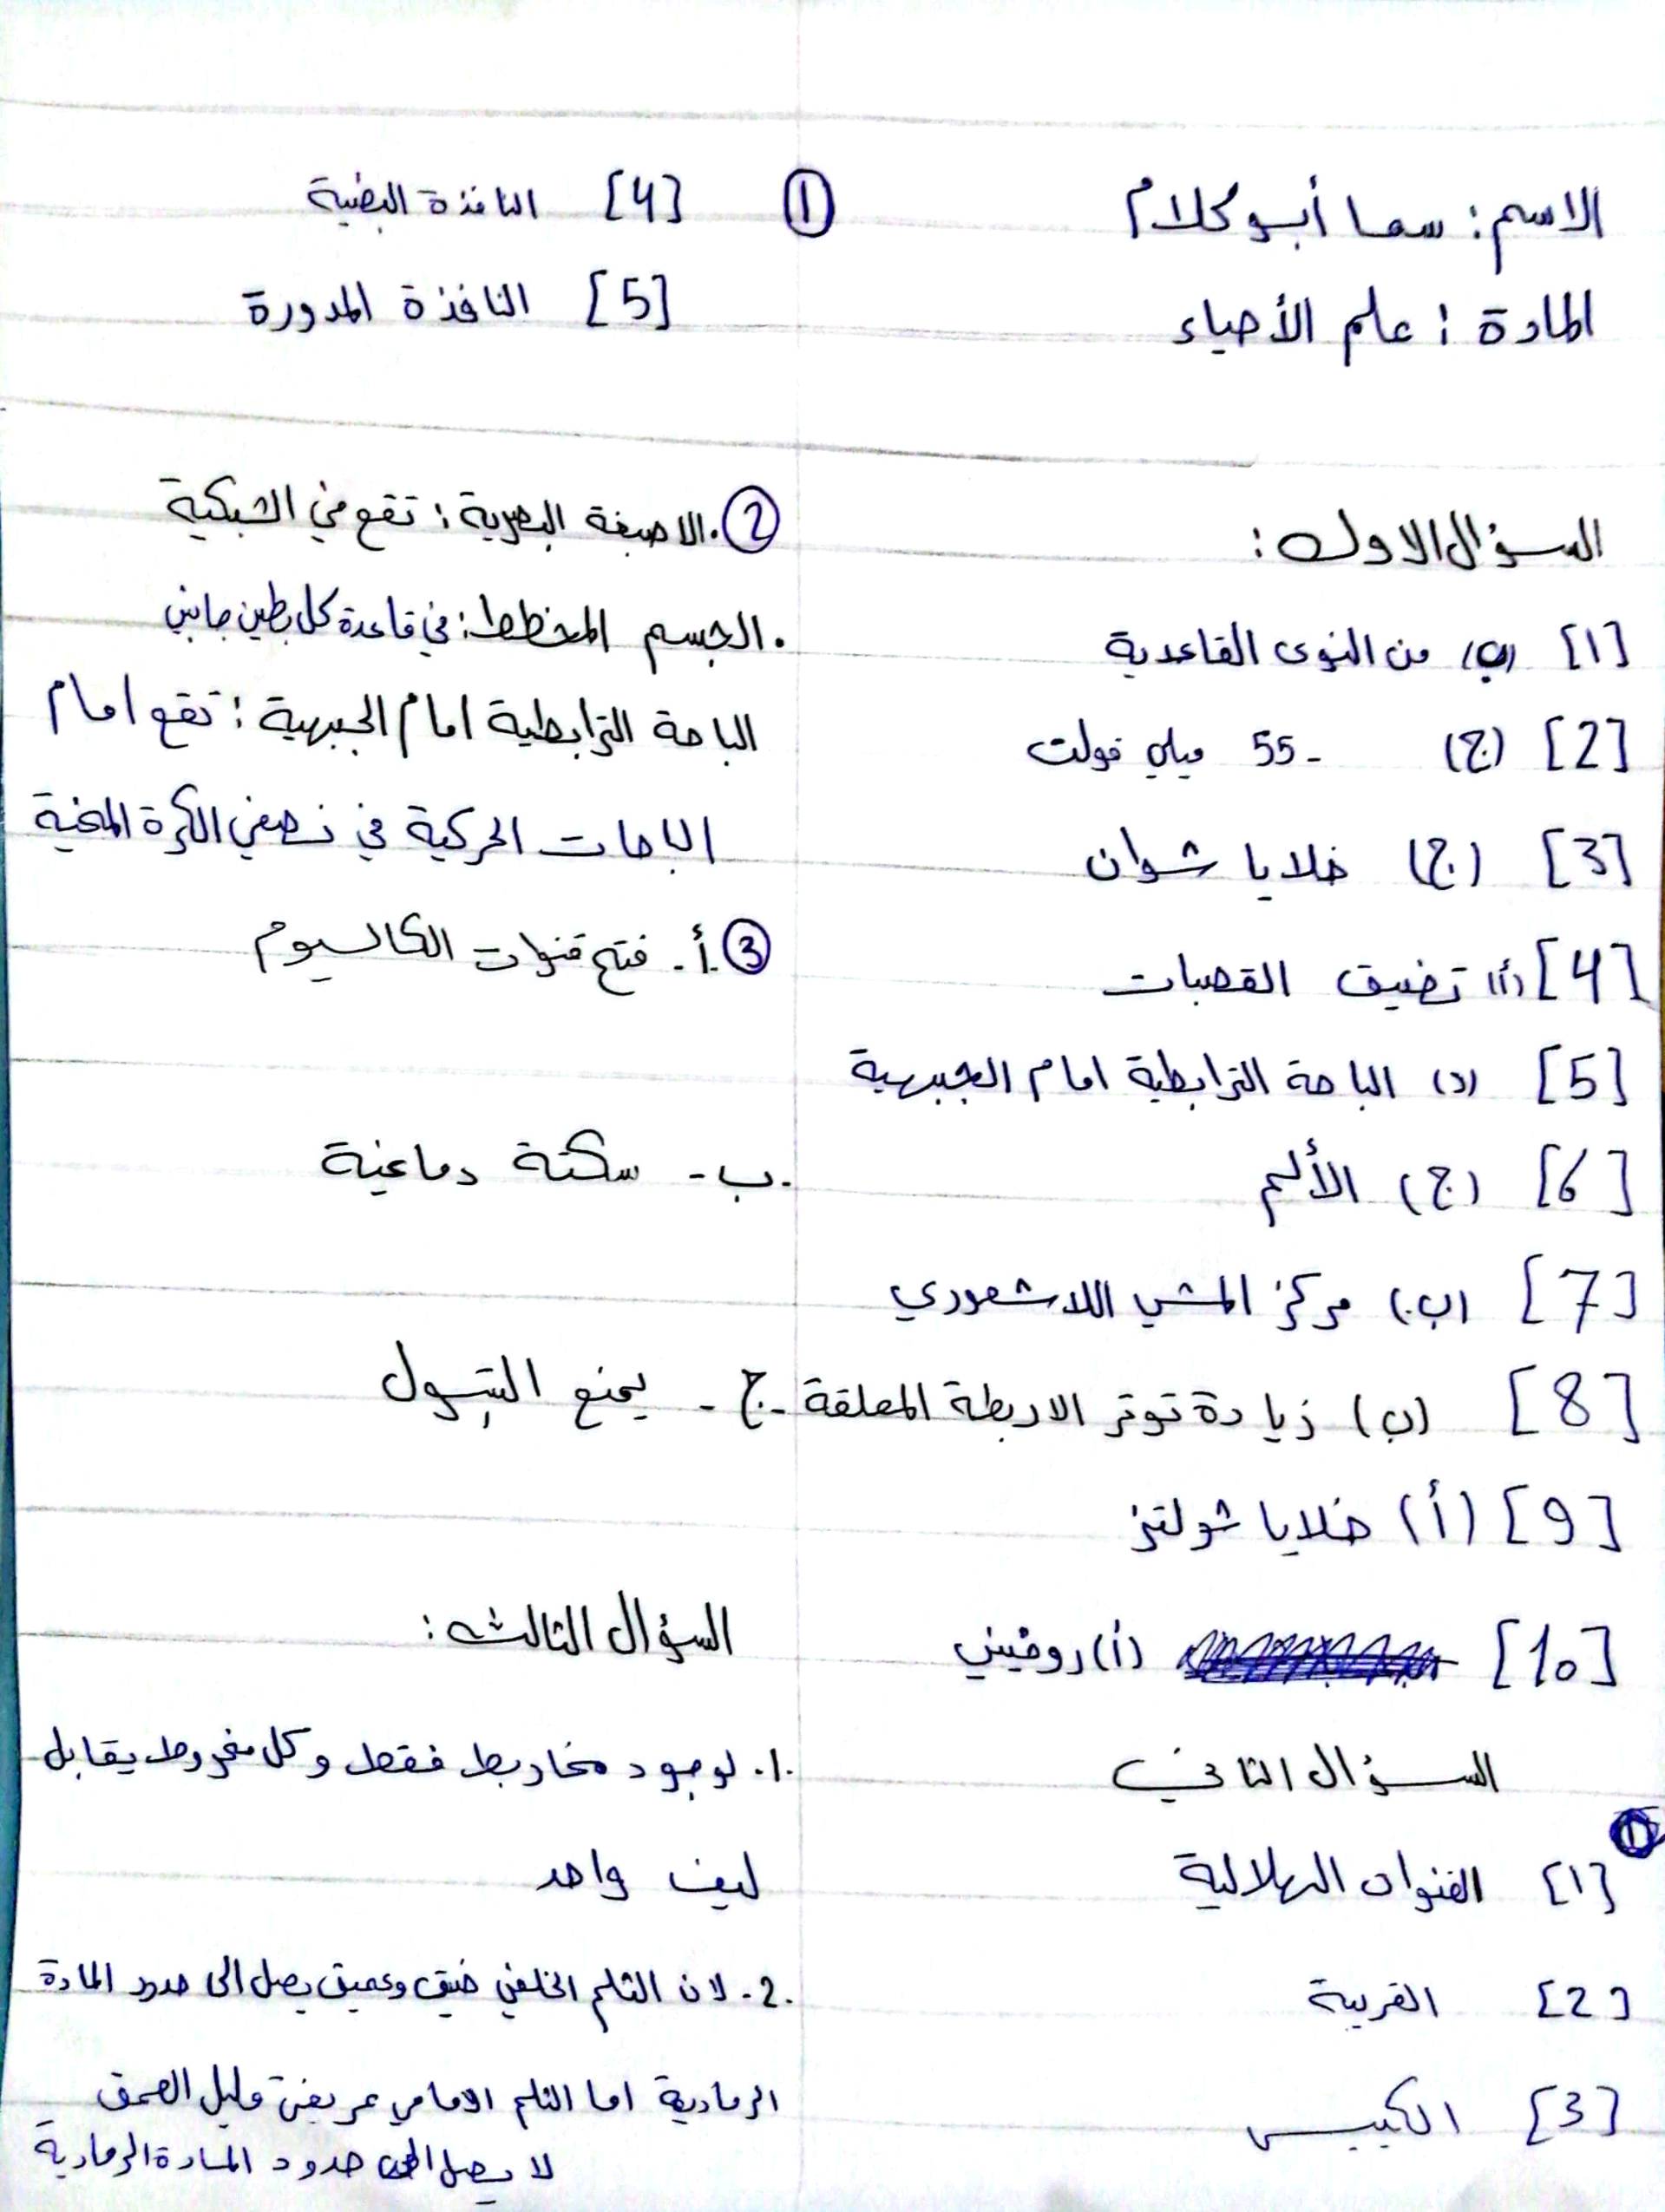 الاسم: سما أبو كلام
المادة: علم الأحياء
السؤال الاول:
[1] (ب) من النوى القاعدية
[2] (ج) -55 ميلي فولت
[3] (ج) خلايا شوان
[4] (أ) تضيق القصبات
[5] (د) الباحة الترابطية امام الجبهية
[6] (ج) الألم
[7] (ب) مركز المشي اللاشعوري
[8] (ب) زيادة توتر الاربطة المعلقة
[9] (أ) خلايا شولتز
[10] (أ) روفيني
السؤال الثاني
①
[1] القنوات الهلالية
[2] القريبة
[3] الكييس
① [4] النافذة البيضية
[5] النافذة المدورة
② .الاصبغة البصرية: تقع في الشبكية
.الجسم المخطط: في قاعدة كل بطين جانبي
الباحة الترابطية امام الجبهية: تقع امام
الباحات الحركية في نصفي الكرة المخية
③ .أ. فتح قنوات الكالسيوم
.ب- سكتة دماغية
-ج- يمنع التبول
السؤال الثالث:
.1. لوجود مخاريط فقط وكل مخروط يقابل
ليف واحد
.2. لان الثلم الخلفي ضيق وعميق يصل الى حدود المادة
الرمادية اما الثلم الامامي عريض قليل العمق
لا يصل الى حدود المادة الرمادية